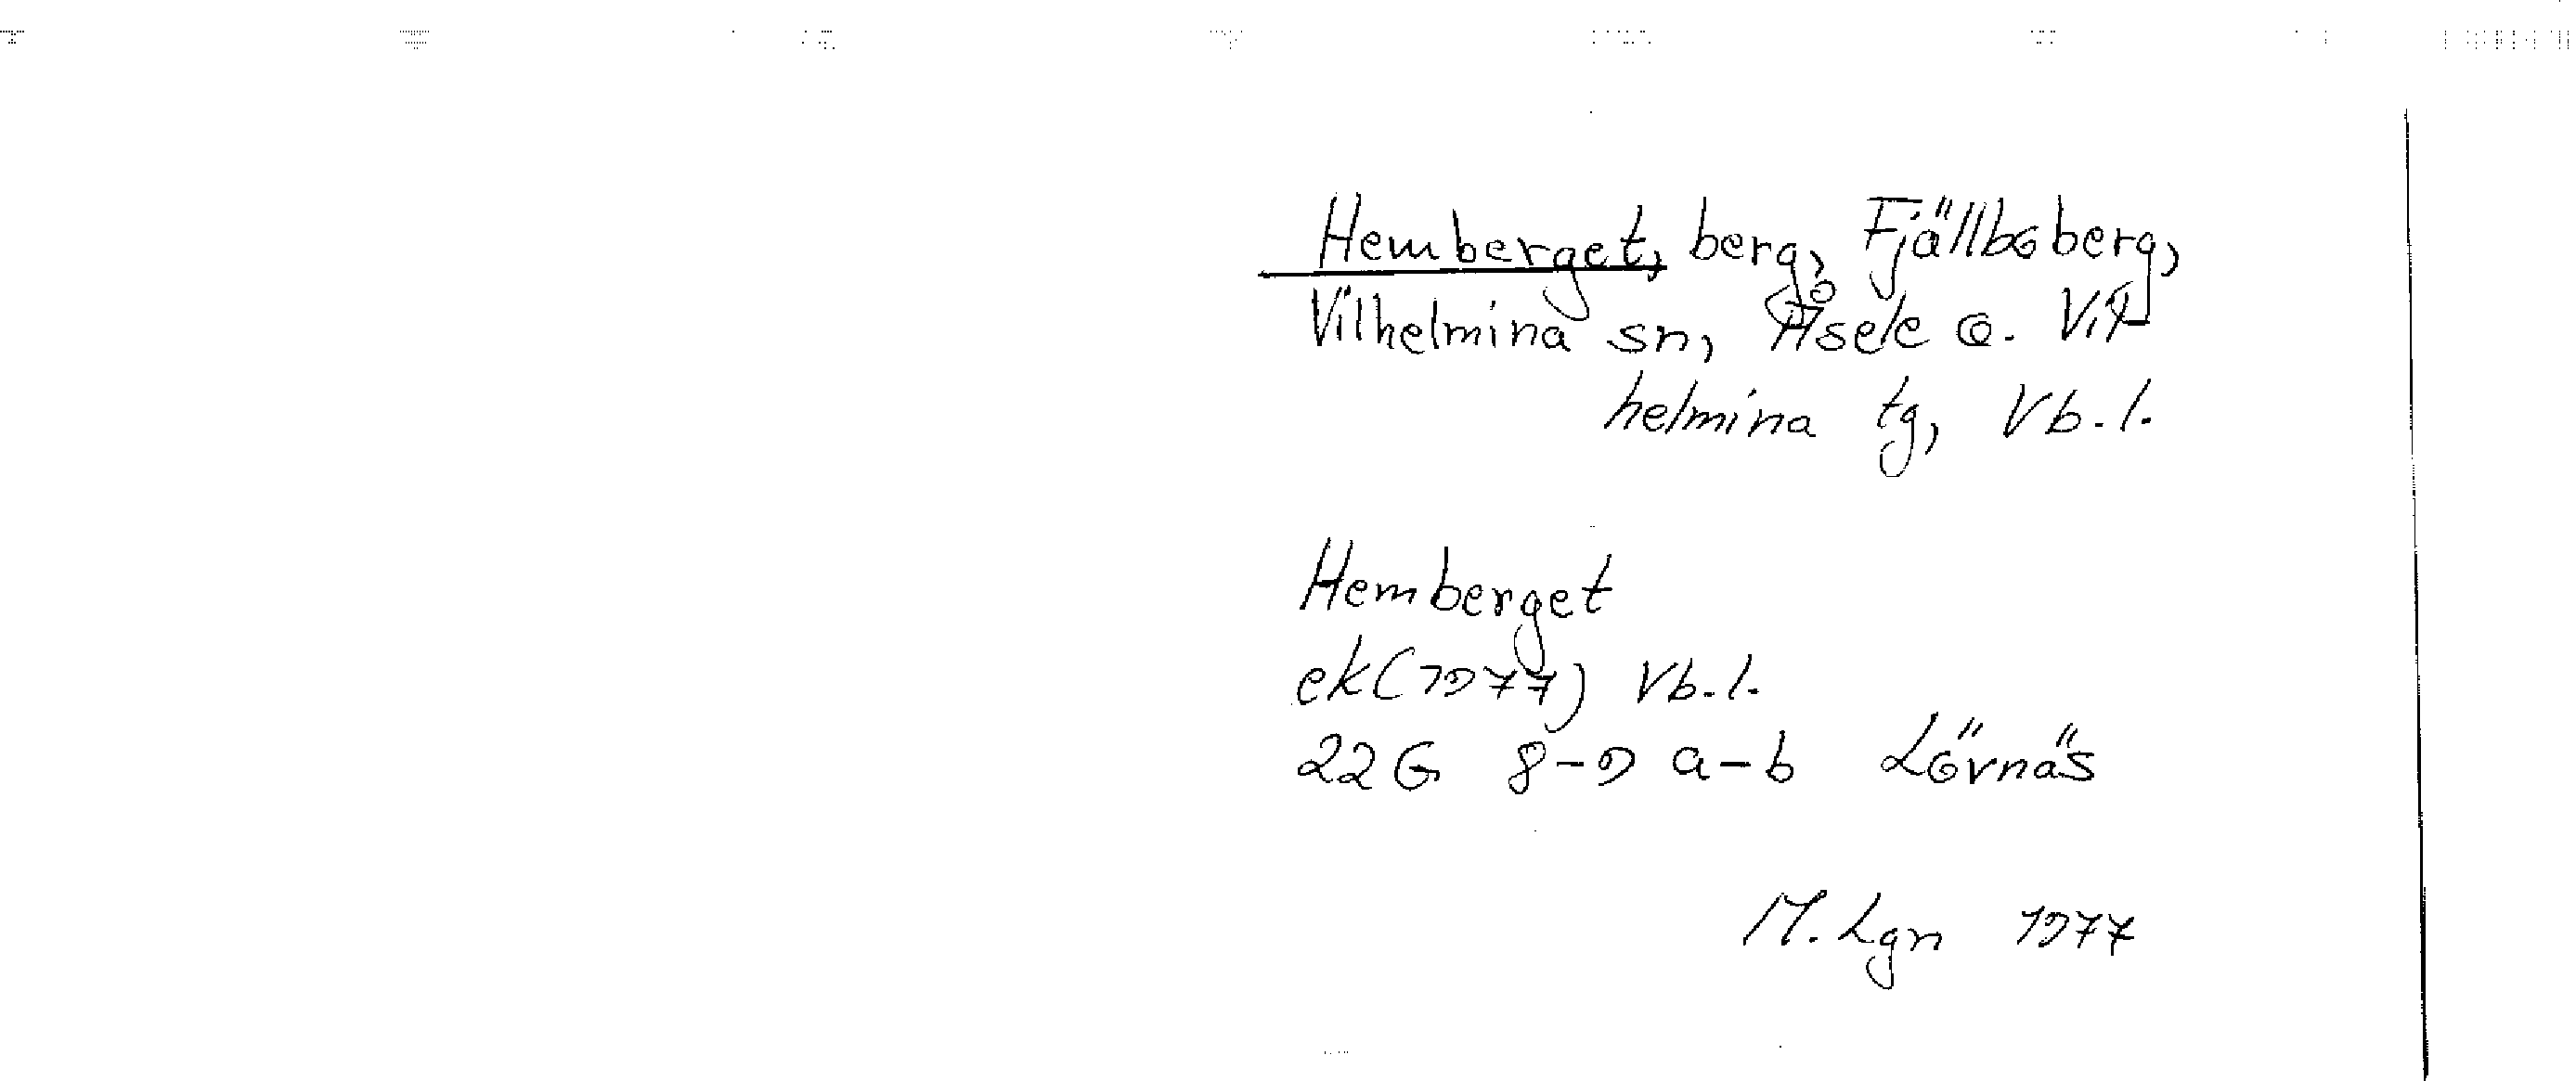 Hemberget, berg, Fjällboberg,
Vilhelmina sn, Åsele o. Vil-
helmina tg, Vb.l.
Hemberget
ek (1977) Vb.l.
22G 8-9 a-b Lövnäs
M. Lgn 1977